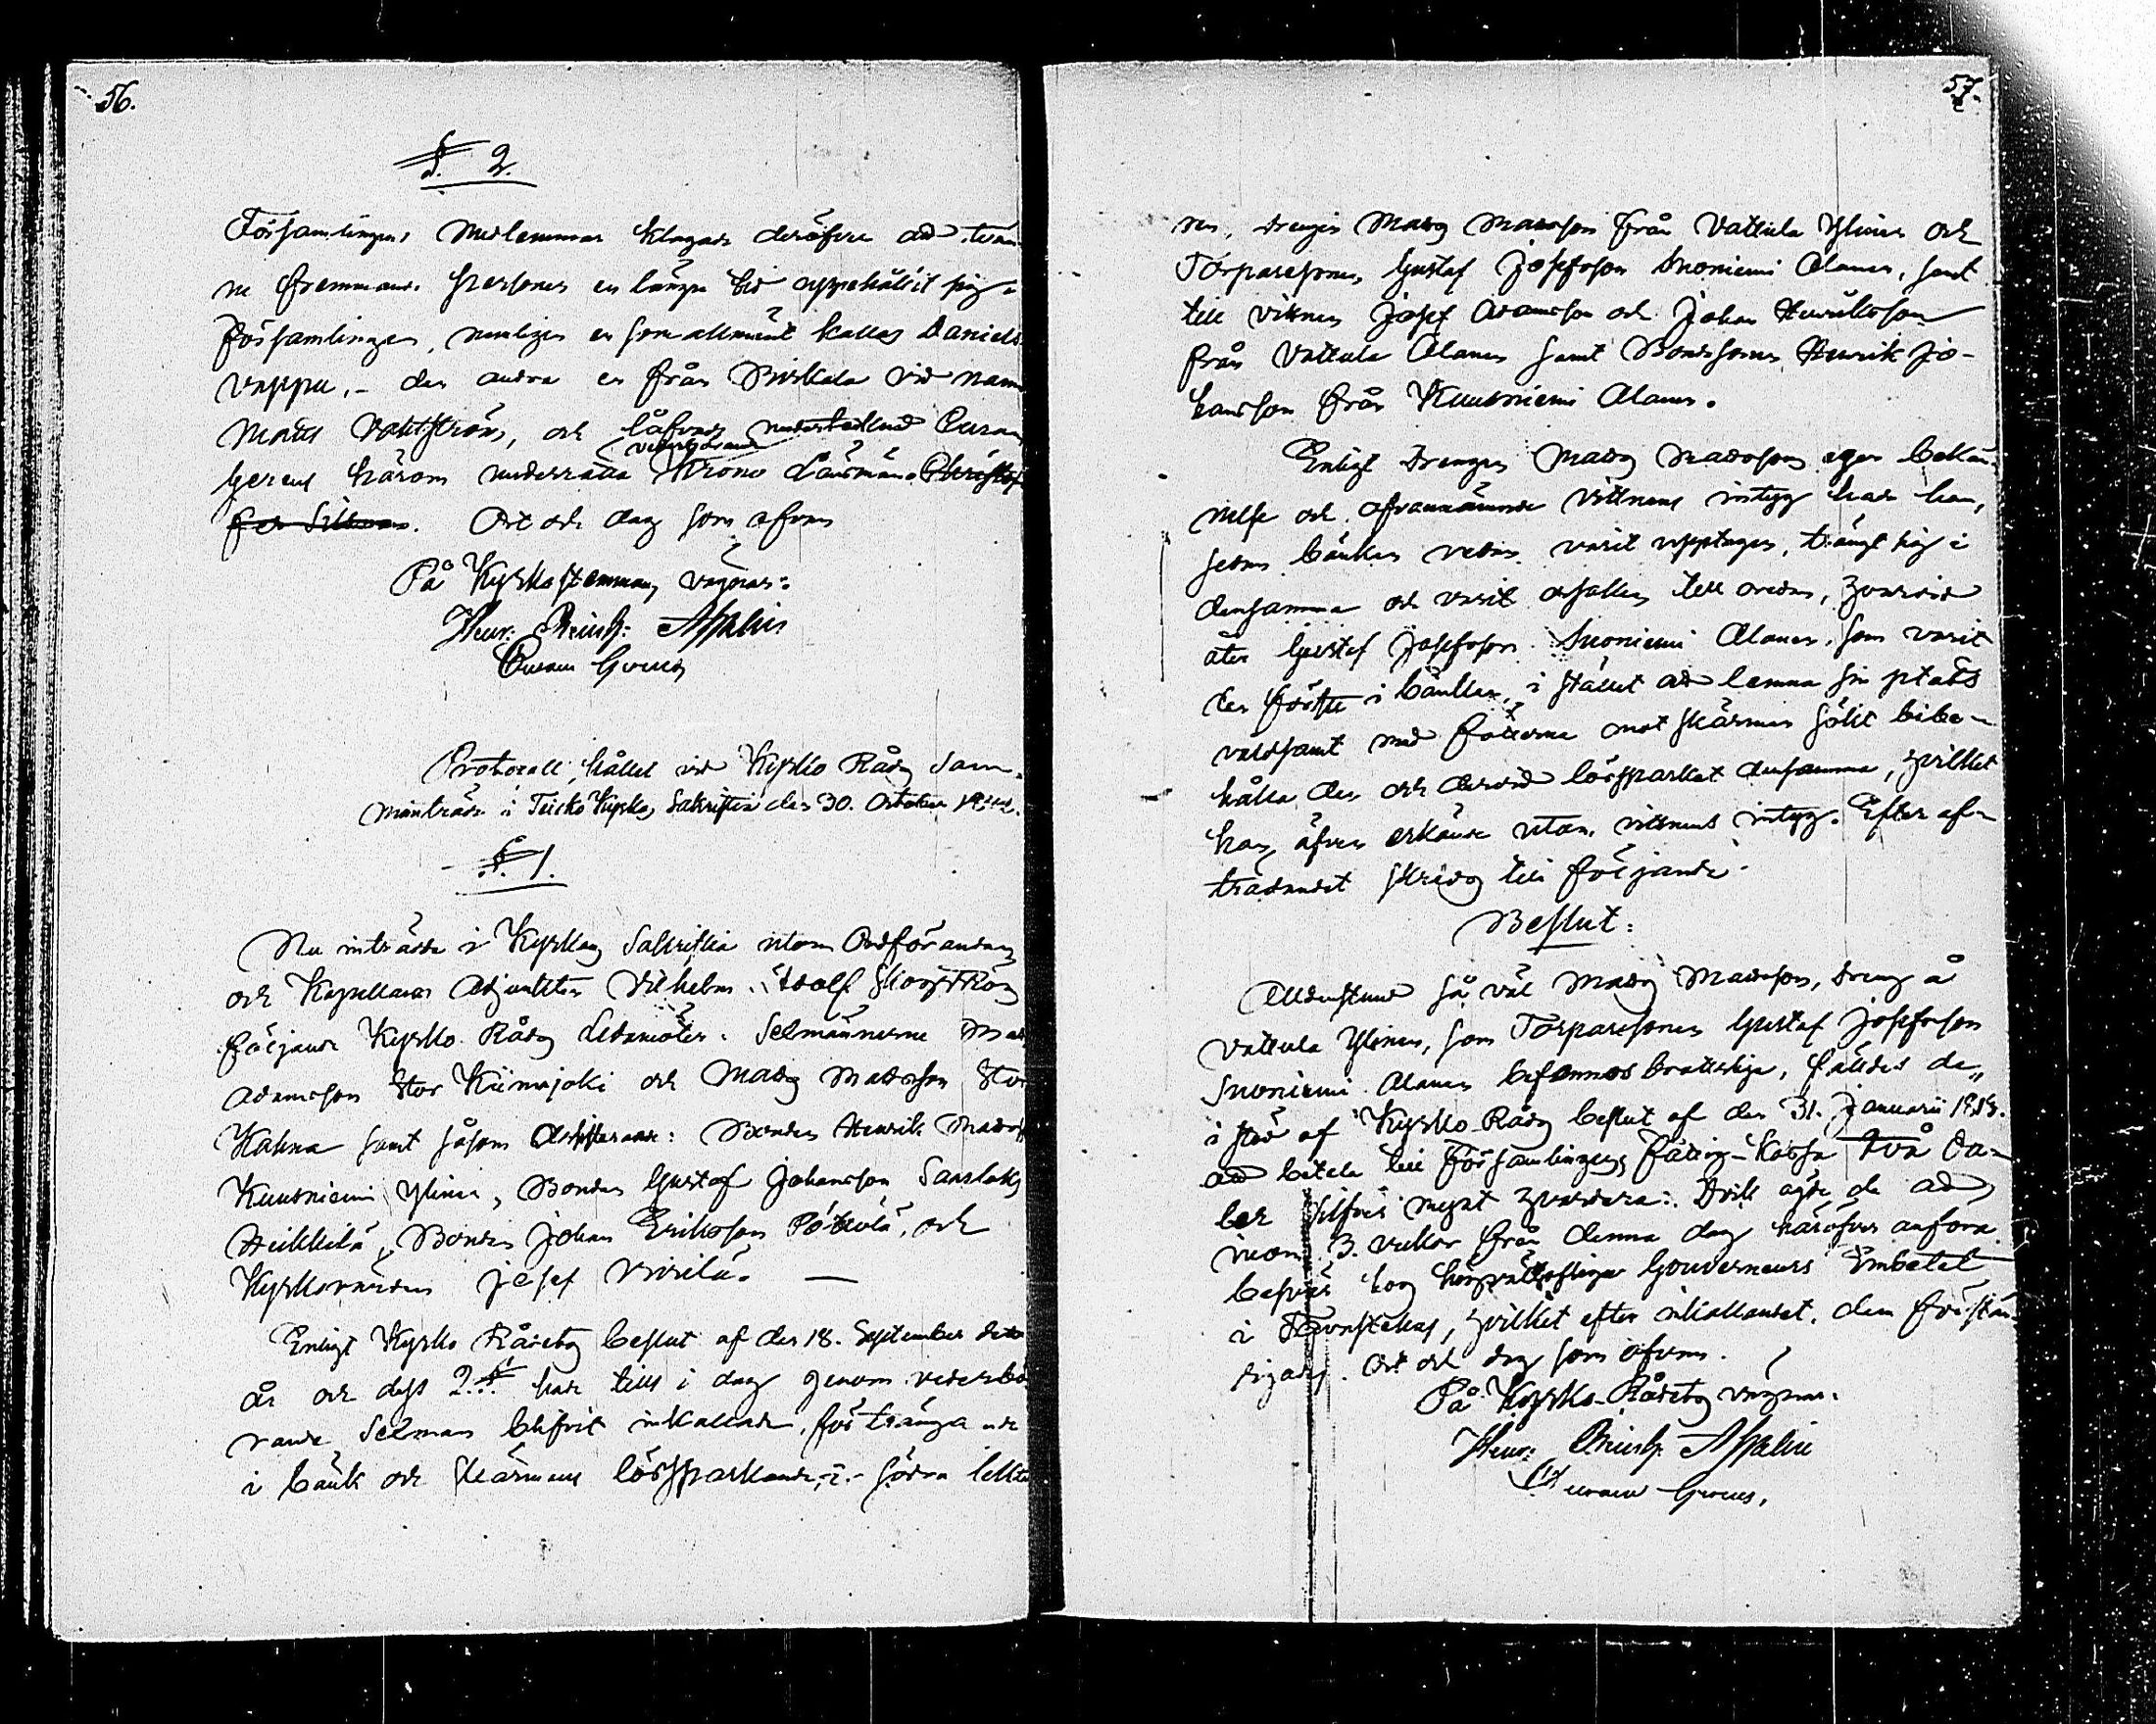 56.
§. 2.
Församlingens Medlemmar klagade deröfver att tvän
ne främmande personer en längre tid uppehållit sig i
församlingen, nemligen en som allmänt kallas Daniels
Vappu, - den andra en från Birkala vid namn
Matts Vahlström, och låfvade undertecknad Curam
vederbörande
Gerens härom underrätta Krono Länsman Christof
fer Ort och dag som ofvan
På Kyrkostämmans vägnar:
Henr: Reinh:
Curam Gerens
Protocoll, hållet vid Kyrko Råds Sam-
manträde i Teisko Kyrkas Sakristia den 30. October
§. 1.
Nu inträdde i Kyrkans Sakristia utom Ordföranden
och Kapellans Adjuncten Vilhelm Adolf
följande Kyrko Råds Ledamöter: Sexmännerne Mat
Adamsson Stor Kiimajoki och Matts Mattsson Stor
Kahna samt såsom Assisterande: Bonden Henrik Matss
Kuusniemi Ylinen, Bonden Gustaf Johansson
Heikkilä, Bonden Johan Eriksson och
Kyrkovärden Josef
Enligt Kyrko Rådets beslut af den 18. September detta
år och dess 2. § hade till i dag genom vederbö
rande Sexman blifvit inkallade, för trängande
i bänk och skärmens lössparkande, i södra läkta
57.
ren, drengen Matts Mattsson från Vattula Ylinen och
Torparesonen Gustaf Josefsson Suoniemi Alanen, samt
till vittnen Josef Adamsson och Johan Henriksson
från Vattula Alanen samt Bondesonen Henrik Jo-
hansson från Kuusniemi Alanen.
Enligt Drengen Matts Mattsons egen bekän-
nelse och ofvannämnde vittnens intyg hade han,
sedan bänken redan varit upptagen, trängt sig i
densamma och varit orsaken till oredan, hvarvid
åter Gustaf Josefsson Suoniemi Alanen, som varit
den förste i bänken, i stället att lemna sin plats
våldsamt med fötterna mot skärmen sökt bibe-
hålla den och dervid lössparkat densamma, hvilket
han äfven erkände utan vittnens intyg. Efter af-
trädandet skreds till följande
Beslut:
Alldenstund så väl Matts Mattsson, dreng å
Vattula Ylinen, som Torparesonen Gustaf Josefsson
Suoniemi Alanen befunnos brottslige, fälldes de,
i stöd af Kyrko Råds beslut af den 31. Januarii
att betala till Församlingens Fattig-Kassa två Ru-
bel Silfver mynt hvardera. Dock ägde de att
inom 3. veckor från denna dag häröfver anföra
besvär hos höglofliga Gouverneurs Embetet
i Tavastehus, hvilket efter inkallandet, dem förstän-
digades. Ort och dag som ofvan.
På Kyrko-Rådets vägnar:
Henr: Reinh:
Curam Gerens,